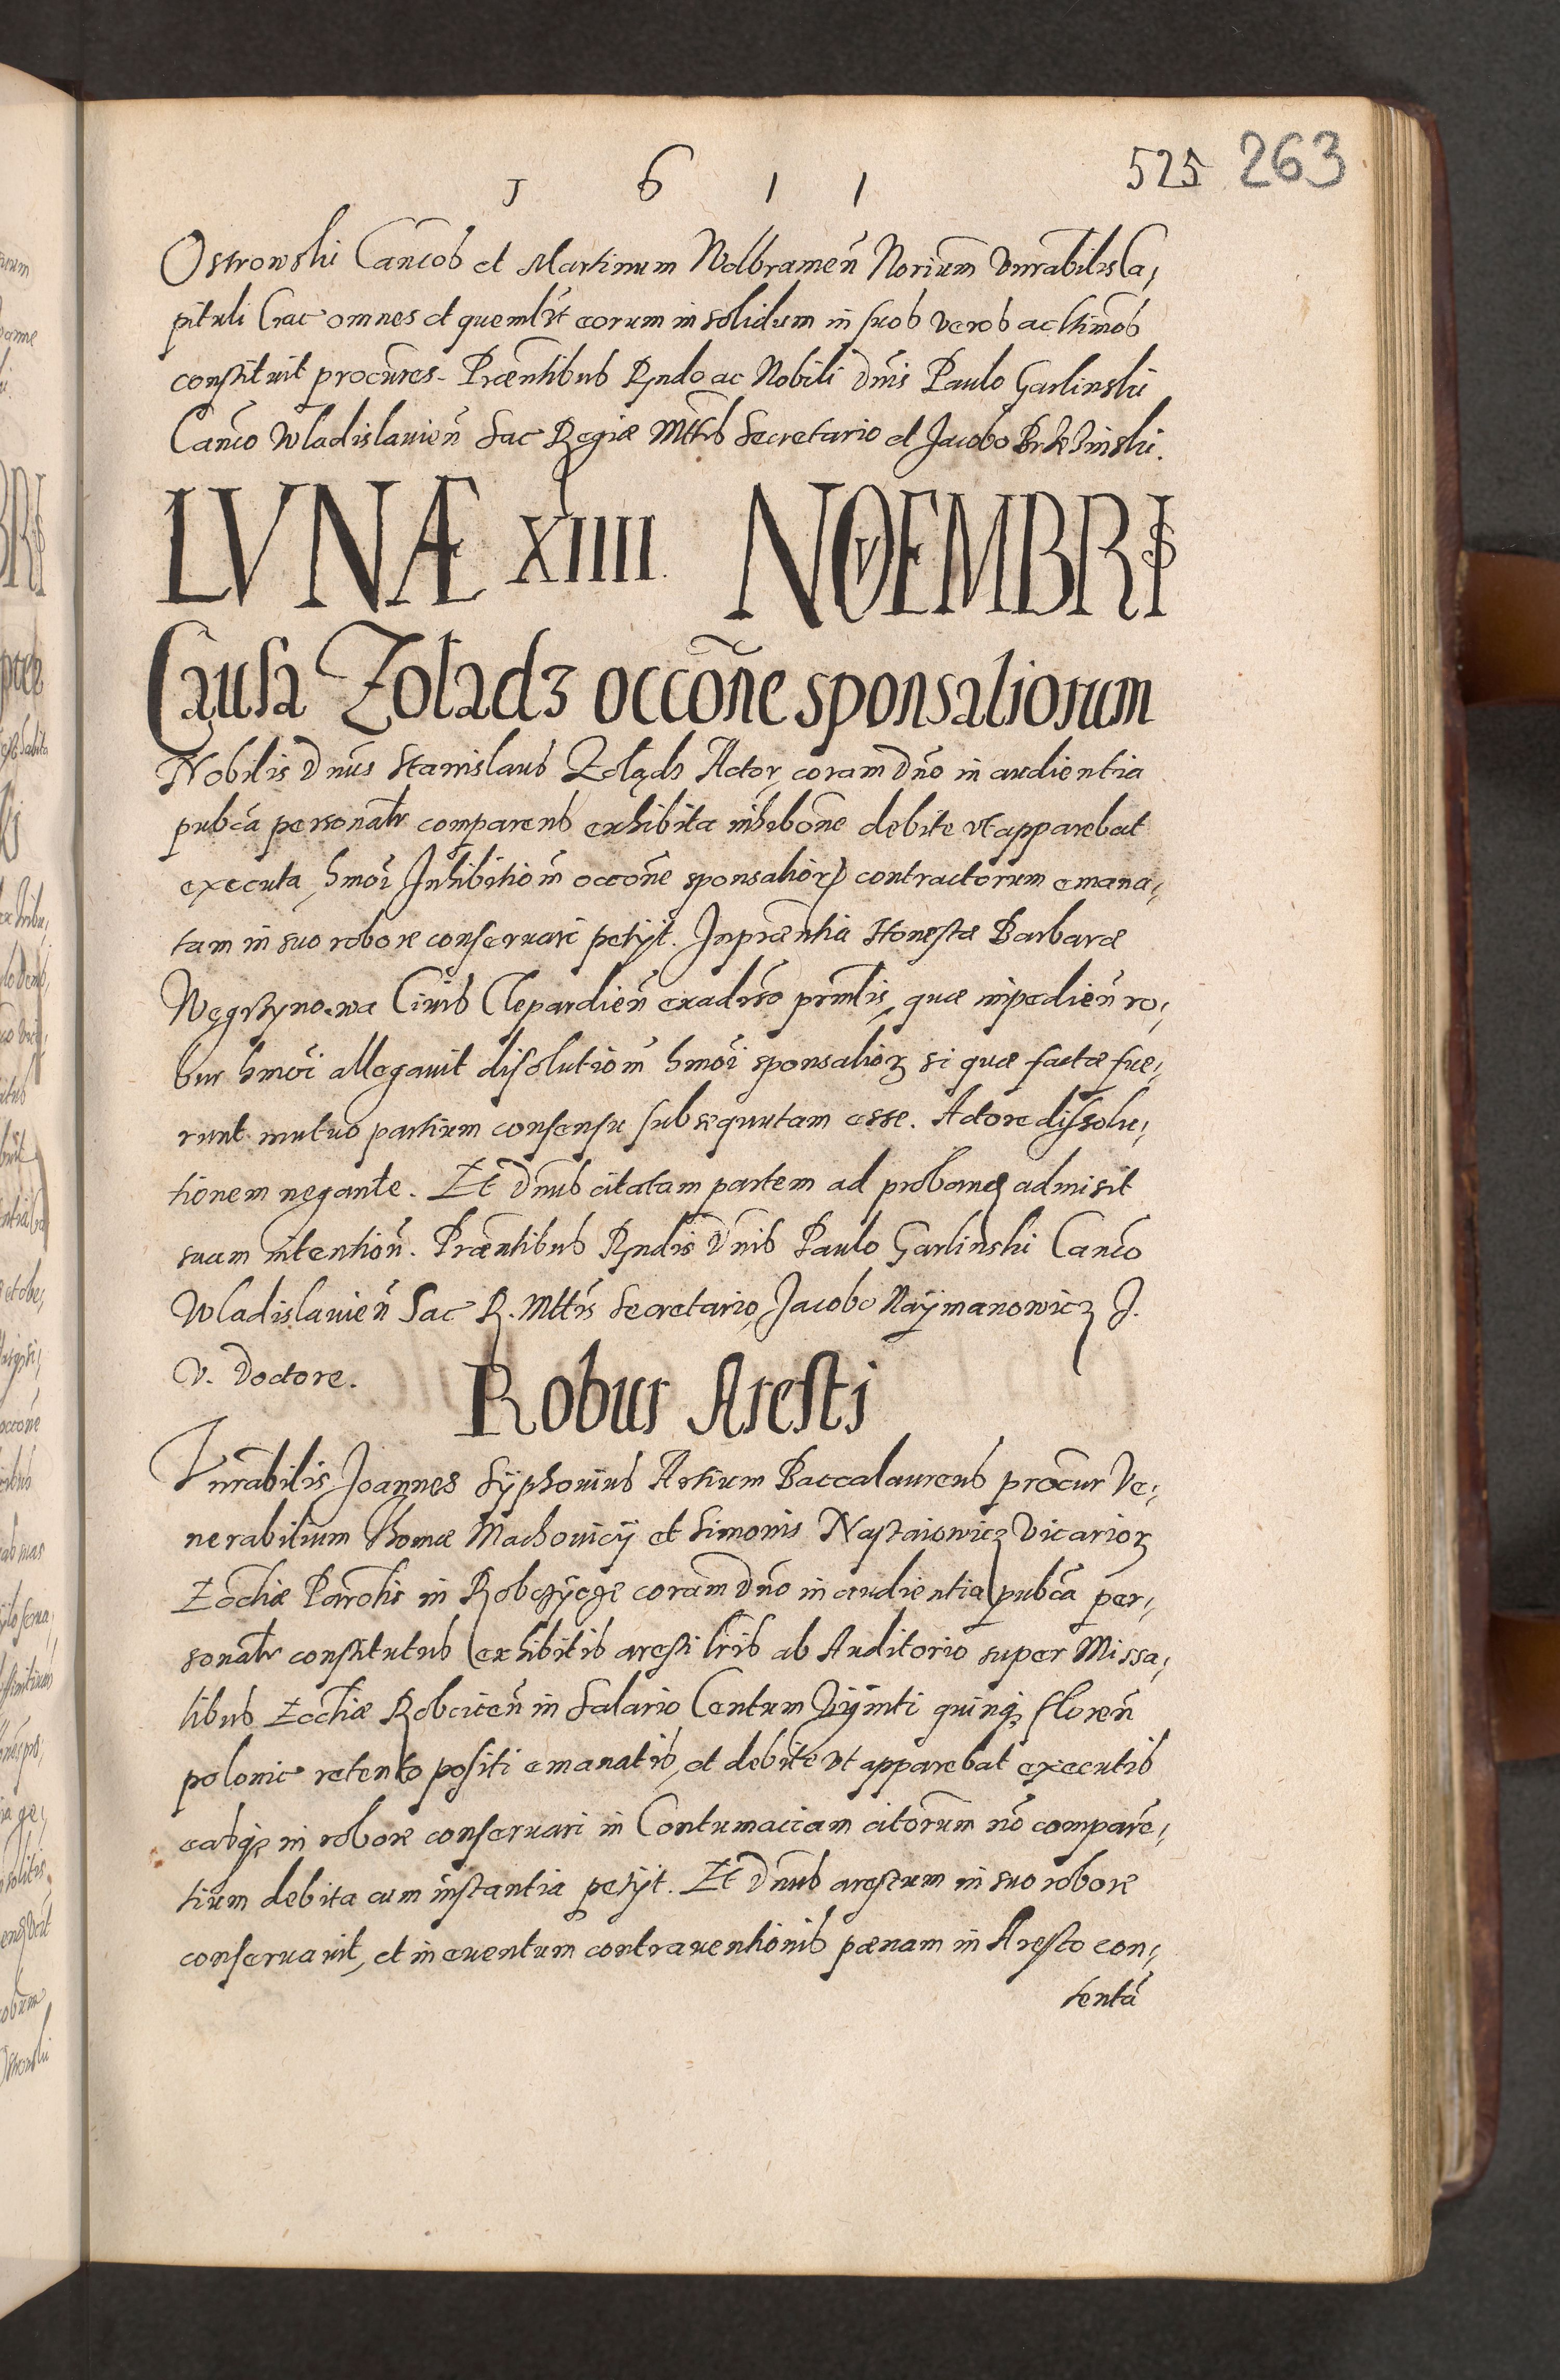 525 263
1 6 1 1
Ostrowski Cancos et Martinum Wolbramen̄ Norium Vnrabilis Ca,
pituli Crac omnes et quemlt eorum in solidum in suos veros ac ltimos
constituit procures. Præntibus Rndo ac Nobili Dnis Paulo Garlinski
Canco Wladislauien̄ Sac Regiæ Mttis Secretario et Jacobo Brzezinski.
LVNÆ XIIII NOVEMBRIS
Causa Zoladz occone sponsaliorum
Nobilis Dnus Stanislaus Zolądz Actor, coram Dno in audientia
pubca personalr comparens exhibita inhibone debite vt apparebat
executa, hmoi Inhibitiom occone sponsaliorum contractorum emana,
tam in suo robore conseruari petijt. In præntia Honestæ Barbaræ
Węgrzynowa Ciuis Clepardien̄ ex aduerso prinlis, quæ impedien̄ ro,
bur hmoi allegauit disolutiom hmoi sponsalior si quæ factæ fue,
runt mutuo partium consensu subsequutam esse. Actore dissolu,
tionem negante. Et Dnus citatam partem ad proband admisit
suam intention̄. Præntibus Rndis Dnis Paulo Garlinski Canco
Wladislauien̄ Sac R. Mttis Secretario, Jacobo Naymanowicz J.
V. Doctore.
Robur Aresti
Vnrabilis Joannes Syphonius Artium Baccalaureus procur Ve,
nerabilium Thomæ Machouicij et Simonis Nastaiowicz Vicarior
Eccliæ Parolis in Robczyce coram Dno in audientia pubca per,
sonalr constitutus exhibitis aresti lris ab Auditorio super Missa,
libus Eccliæ Robcicen̄ in Salario Centum Viginti quinq floren̄
polonic retento positi emanatis, et debite vt apparebat executis
easq in robore conseruari in Contumaciam citorum no compare,
tium debita cum instantia petijt. Et Dnus arestum in suo robore
conseruauit, et in euentum contrauentionis pænam in Aresto con,
tentā